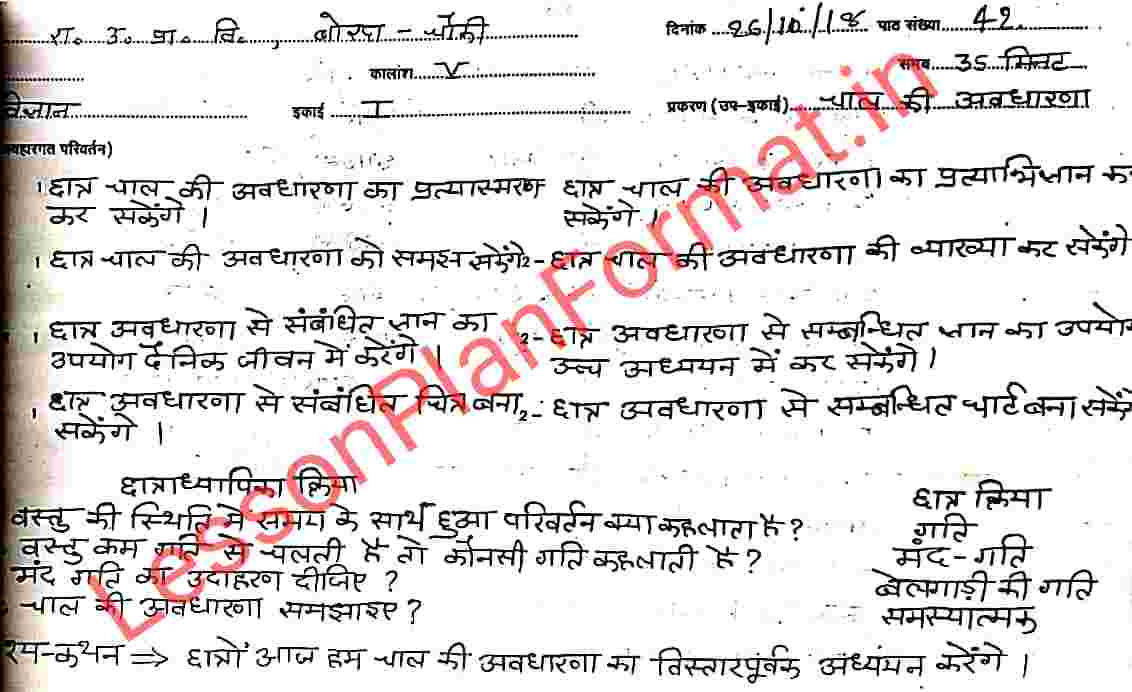 रा. उ. प्रा. वि., बोरदा - चौकी दिनांक 26/10/18 पाठ संख्या 42
कालांश V समय 35 मिनट
विज्ञान इकाई I प्रकरण (उप-इकाई) चाल की अवधारणा
व्यवहारगत परिवर्तन)
1 छात्र चाल की अवधारणा का प्रत्यास्मरण छात्र चाल की अवधारणा का प्रत्याभिज्ञान कर
कर सकेंगे । सकेंगे ।
1 छात्र चाल की अवधारणा को समझ सकेंगे 2- छात्र चाल की अवधारणा की व्याख्या कर सकेंगे
1 छात्र अवधारणा से संबंधित ज्ञान का 2- छात्र अवधारणा से सम्बन्धित ज्ञान का उपयोग
उपयोग दैनिक जीवन में करेंगे । उच्च अध्ययन में कर सकेंगे ।
1 छात्र अवधारणा से संबंधित चित्र बना 2- छात्र अवधारणा से सम्बन्धित चार्ट बना सकेंगे
सकेंगे ।
छात्राध्यापिका क्रिया छात्र क्रिया
वस्तु की स्थिति में समय के साथ हुआ परिवर्तन क्या कहलाता है ? गति
वस्तु कम गति से चलती है तो कौनसी गति कहलाती है ? मंद-गति
मंद गति का उदाहरण दीजिए ? बेलगाड़ी की गति
चाल की अवधारणा समझाइए ? समस्यात्मक
श्य-कथन ⇒ छात्रों आज हम चाल की अवधारणा का विस्तारपूर्वक अध्ययन करेंगे ।
LessonPlanFormat.in